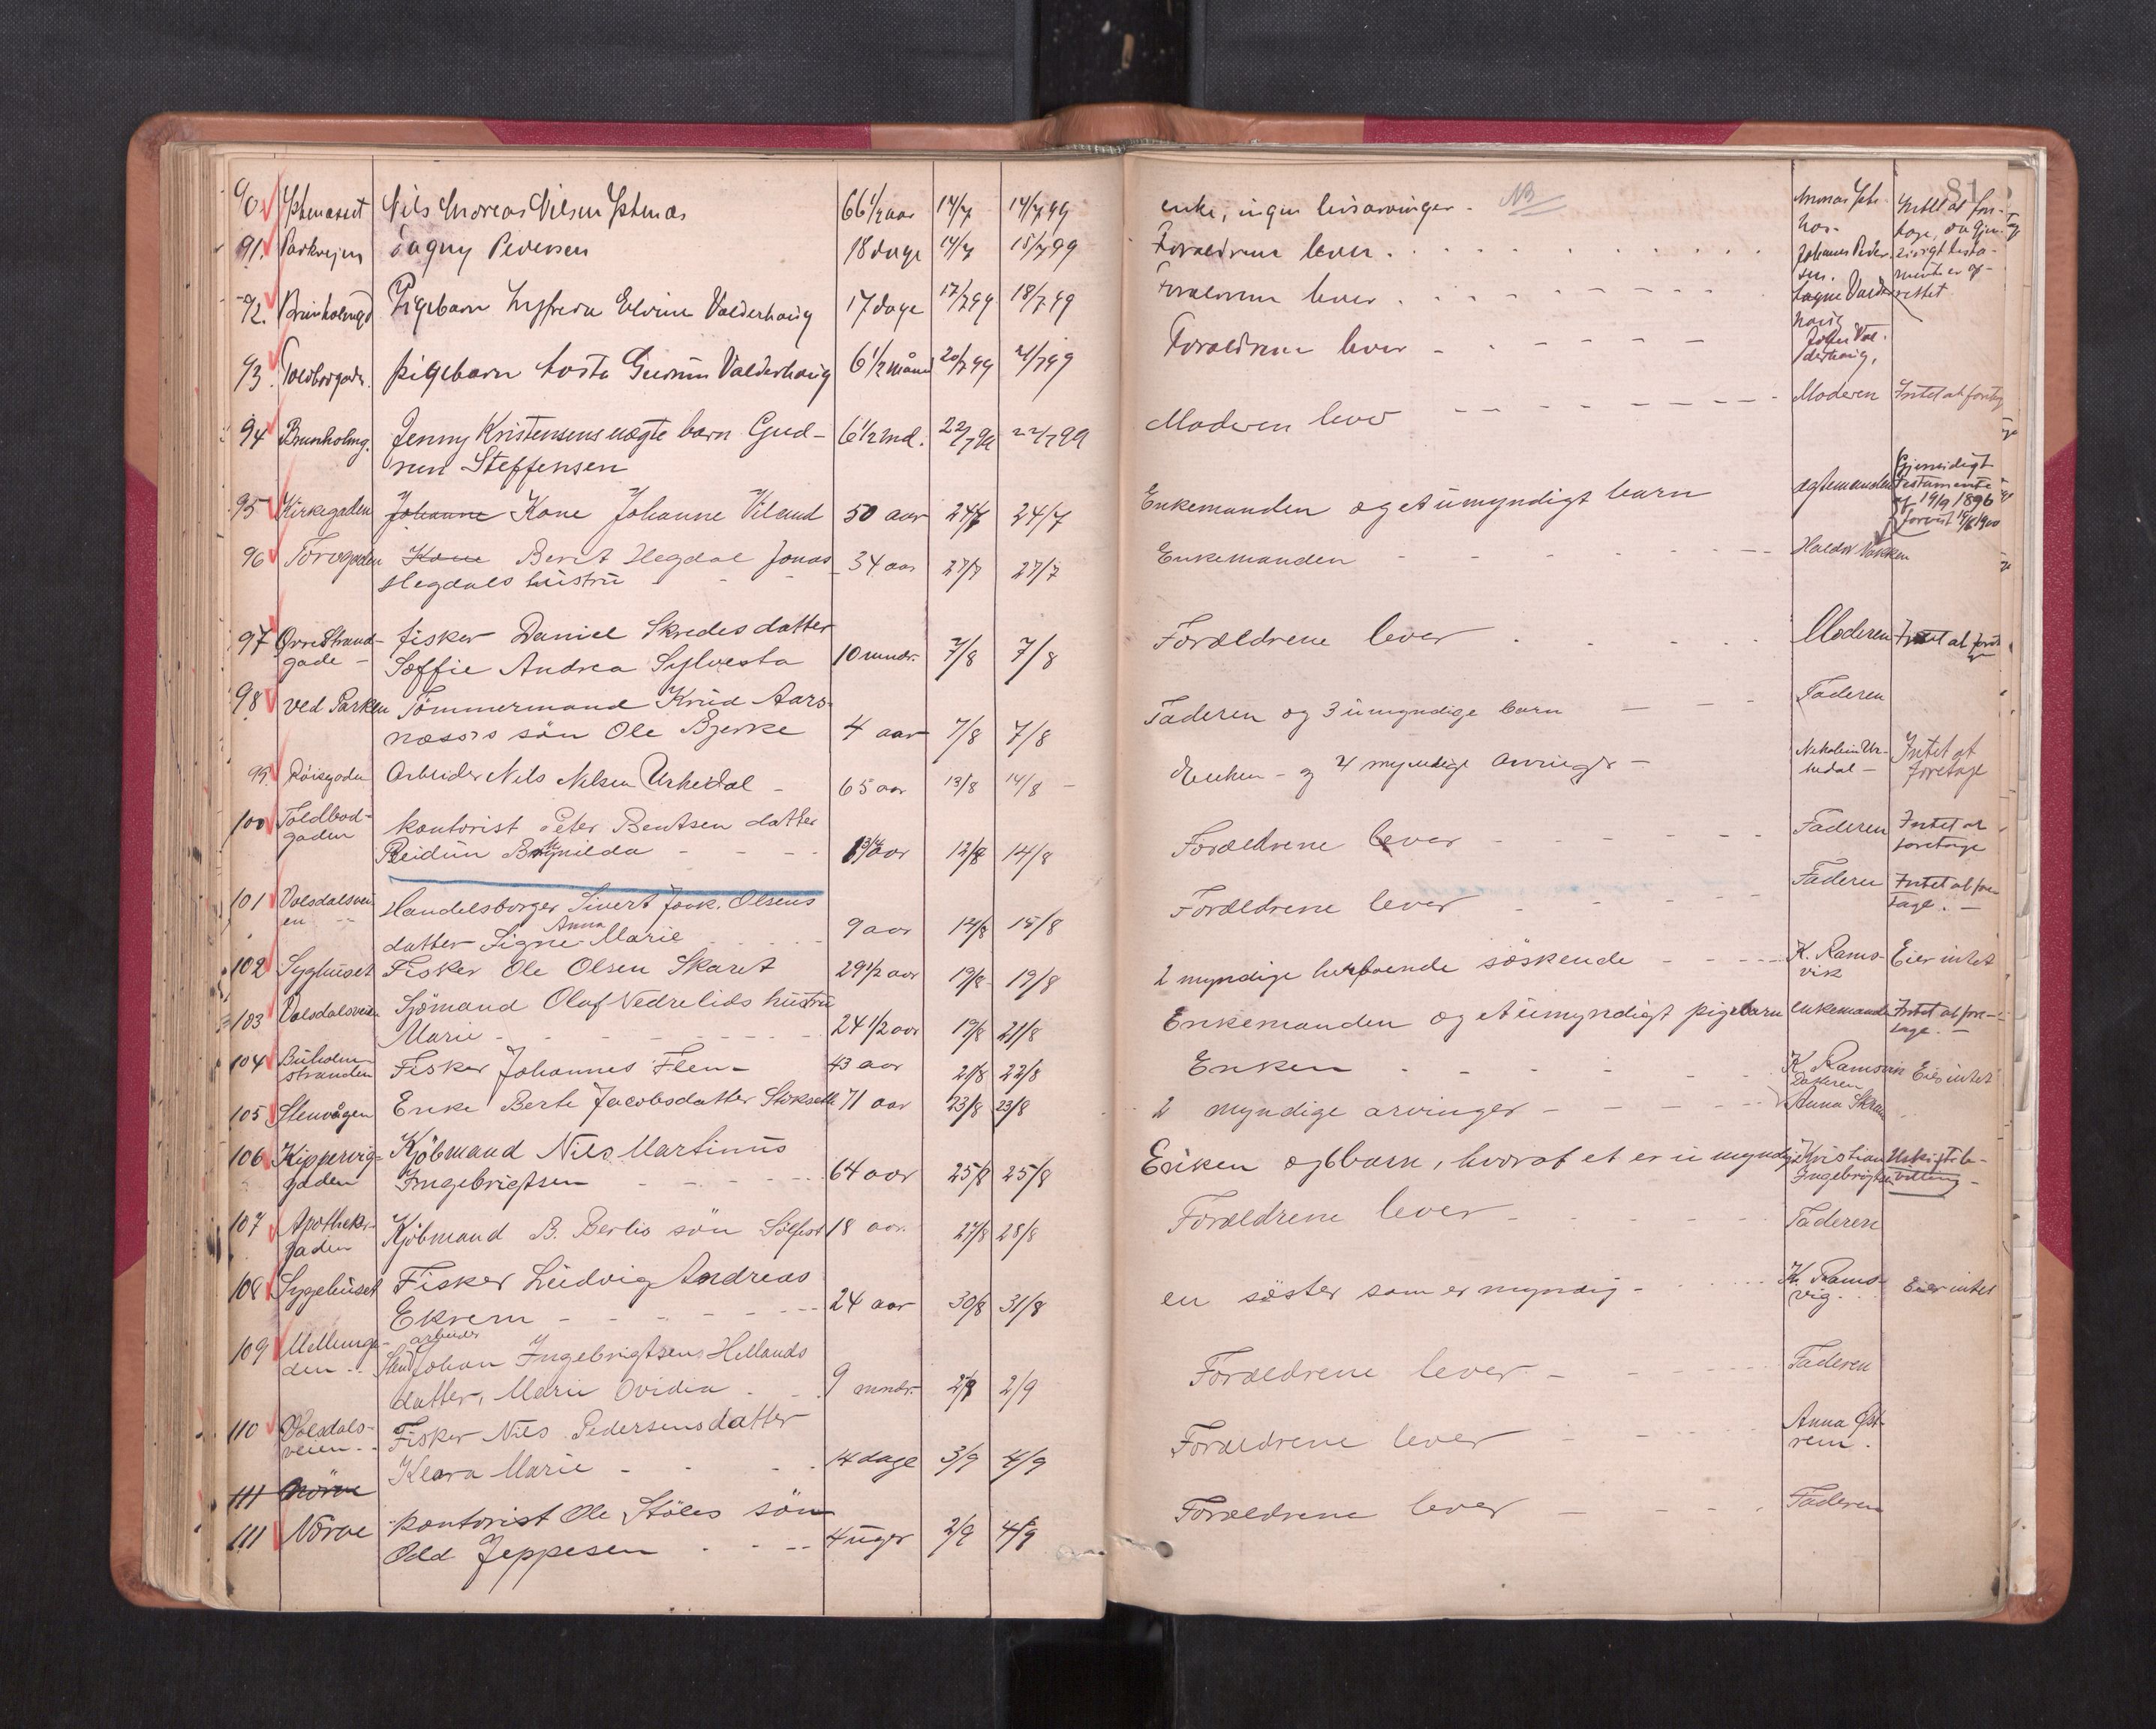 81
90 Nils Andreas Nilsen Ystenæs 66 1/2 aar 14/7 14/7 99 enke, ingen livsarvinger. NB Intet at fore-
tage, da gjen-
sidigt testa-
mente er op-
rettet
91. Parkvejen Dagny Pedersen 18 dage 14/7 15/7 99 Forældrene lever. Johannes Peder-
sen.
92. Brunholmgd Pigebarn Elvine Valderhaug 17 dage 17/7 99 18/7 99 Forældrene lever. Valder-
haug
93. Toldbodgaden. pigebarn Aasta Gudrun Valderhaug 6 1/2 måned 20/7 99 21/7 99 Forældrene lever Val-
derhaug.
94 Brunholmg. Jenny Kristensens uægte barn Gud-
run Steffensen 6 1/2 md. 22/7 99 22/7 99 Moderen lever Moderen Intet at foretage
95 Kirkegaden Johanne Kone Johanne Viland 50 aar 24/7 24/7 Enkemanden og et umyndigt barn ægtemanden Gjensidigt
testamente
af 19/9 1896
96 Torvgaden Kone Berit Hegdal Jonas
Hegdals hustru 34 aar 27/7 27/7 Enkemanden Haldor Nakken
97 Øvre Strand-
gade - fisker Daniel Skredes datter
Soffie Andrea Sylvesta 10 mndr. 7/8 7/8 Forældrene lever Moderen Intet at foretage
98 ved Parken Tømmermand Knud Aars-
næss's søn Ole Bjerke 4 aar 7/8 7/8 Faderen og 3 umyndige barn Faderen
99. Røisgaden Arbeider Nils Nilsen Urkedal - 65 aar 13/8 14/8 Enken - og 4 myndige arvinger - Intet at
foretage
100 Toldbod-
gaden kontorist Peter Bentsen datter
Reidun Brynilda 12/8 14/8 Forældrene lever Faderen Intet at
foretage
101 Volsdalsvei-
en Handelsborger Sivert Joak. Olsens
datter Signe Anna Marie 9 aar 14/8 15/8 Forældrene lever Faderen Intet at fore-
tage. -
102 Syghuset Fisker Ole Olsen Skaret 29 1/2 aar 19/8 19/8 2 myndige herboende søskende K. Rams-
vik Eier intet
103 Volsdalsveien Sjømand Olaf Nedrelids hustru
Marie 24 1/2 aar 19/8 21/8 Enkemanden og et umyndigt pigebarn enkemanden Intet at fore-
tage. -
104 Buholm-
stranden Fisker Johannes Flem 43 aar 21/8 22/8 Enken K. Ramsvik Eier intet
105 Stenvågen Enke Berte Jacobsdatter Stokseth 71 aar 23/8 23/8 2 myndige arvinger Datteren
Anna
106 Kippervig-
gaden Kjøbmand Nils Martinus
Ingebrigtsen 64 aar 25/8 25/8 Enken og 6 barn, hvoraf et er umyndigt Kristian
Ingebrigtsen Uskiftebe-
villing -
107 Apotheker-
gaden Kjøbmand B. Berlis søn Solfest 18 aar. 27/8 28/8 Forældrene lever Faderen
108 Sygehuset Fisker Ludvig Andreas
Ekrem 24 aar 30/8 31/8 en søster som er myndig - K. Rams-
vig. Eier intet
109 Mellemga-
den arbeider
Johan Ingebrigtsens Hellands
datter, Marie Ovidia 9 mndr. 2/9 2/9 Forældrene lever Faderen
110 Volsdals-
veien Fisker Nils Pedersens datter
Klara Marie 14 dage 3/9 4/9 Forældrene lever Anna Øst-
rem.
111 Nørve
111 Nørve kontorist Ole Støles søn
Odd Jeppesen 4 uger 2/9 4/9 Forældrene lever Faderen